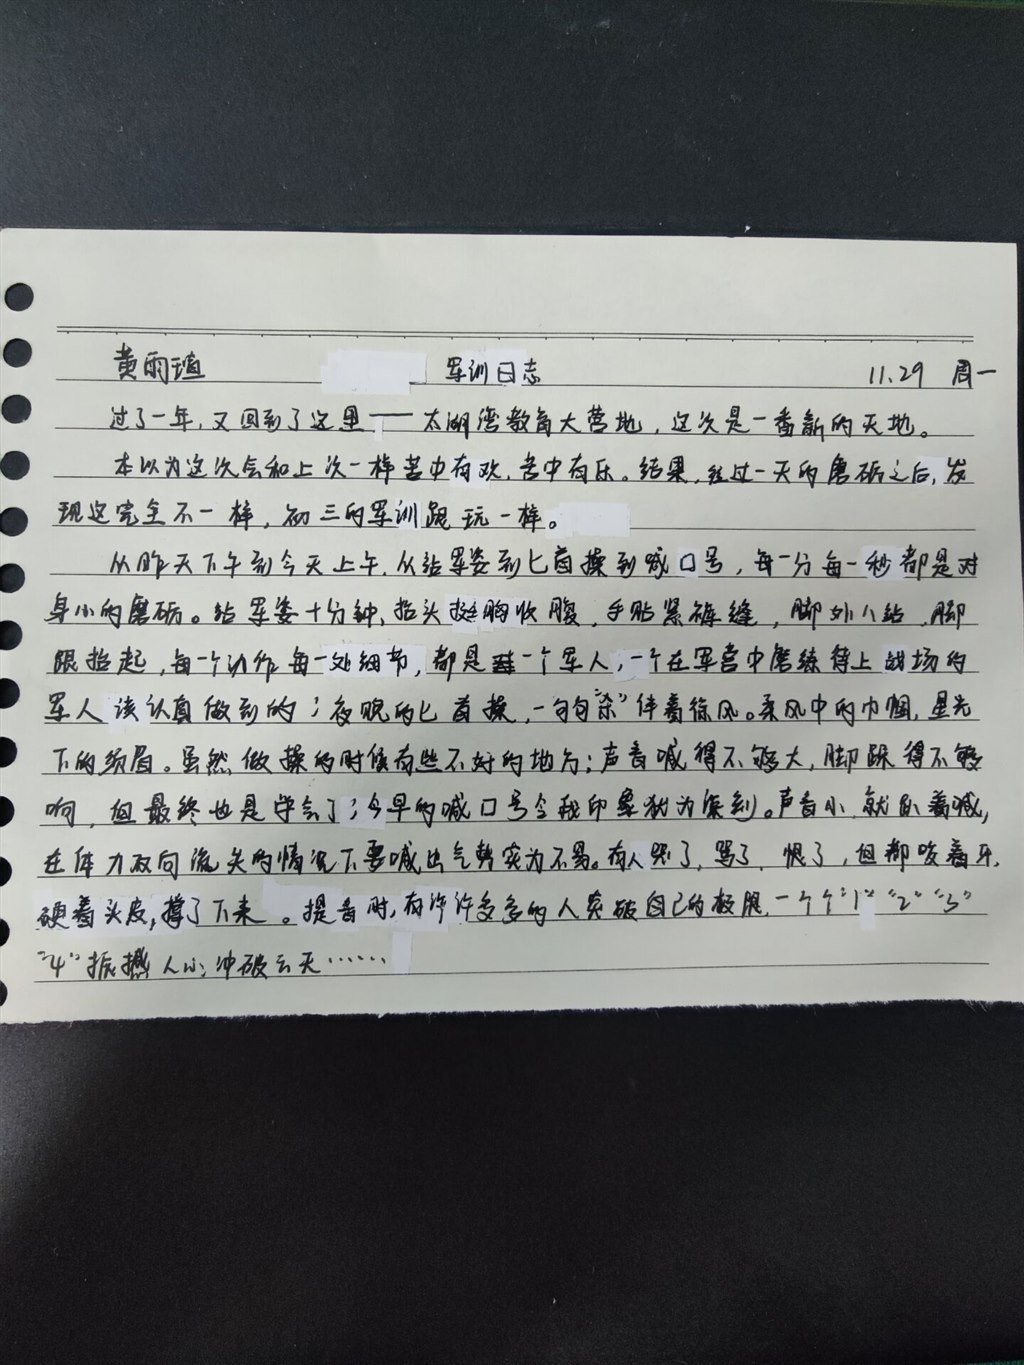 黄雨瑄 军训日志 11.29 周一
过了一年，又回到了这里——太湖湾教育大营地，这次是一番新的天地。
本以为这次会和上次一样苦中有欢，苦中有乐。结果，经过一天的磨砺之后，发
现这完全不一样，初三的军训跟玩一样。
从昨天下午到今天上午，从站军姿到匕首操到喊口号，每一分每一秒都是对
身心的磨砺。站军姿十分钟，抬头挺胸收腹，手贴紧裤缝，脚外八站，脚
跟抬起，每一个动作每一处细节，都是一个军人，一个在军营中磨练待上战场的
军人该认真做到的；夜晚的匕首操，一句句“杀”伴着徐风。柔风中的巾帼，星光
下的须眉。虽然做操的时候有些不好的地方：声音喊得不够大，脚跺得不够
响，但最终也是学会了；今早的喊口号令我印象犹为深刻。声音小，就趴着喊，
在体力双向流失的情况下要喊出气势实为不易。有人哭了，骂了，恨了，但都咬着牙，
硬着头皮，撑了下来。提音时，有许许多多的人突破自己的极限，一个个“1”“2”“3”
“4”振撼人心，冲破云天……